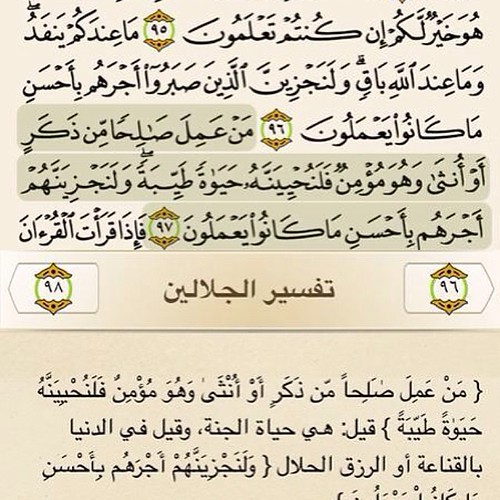 هُوَ خَيْرٌ لَّكُمْ إِن كُنتُمْ تَعْلَمُونَ ٩٥ مَا عِندَكُمْ يَنفَدُ ۖ
وَمَا عِندَ ٱللَّهِ بَاقٍ ۗ وَلَنَجْزِيَنَّ ٱلَّذِينَ صَبَرُوٓا۟ أَجْرَهُم بِأَحْسَنِ
مَا كَانُوا۟ يَعْمَلُونَ ٩٦ مَنْ عَمِلَ صَـٰلِحًا مِّن ذَكَرٍ
أَوْ أُنثَىٰ وَهُوَ مُؤْمِنٌ فَلَنُحْيِيَنَّهُۥ حَيَوٰةً طَيِّبَةً ۖ وَلَنَجْزِيَنَّهُمْ
أَجْرَهُم بِأَحْسَنِ مَا كَانُوا۟ يَعْمَلُونَ ٩٧ فَإِذَا قَرَأْتَ ٱلْقُرْءَانَ
٩٦ تفسير الجلالين ٩٨
{ مَنْ عَمِلَ صَـٰلِحاً مِّن ذَكَرٍ أَوْ أُنْثَىٰ وَهُوَ مُؤْمِنٌ فَلَنُحْيِيَنَّهُ
حَيَوٰةً طَيِّبَةً } قيل: هي حياة الجنة، وقيل في الدنيا
بالقناعة أو الرزق الحلال { وَلَنَجْزِيَنَّهُمْ أَجْرَهُم بِأَحْسَنِ